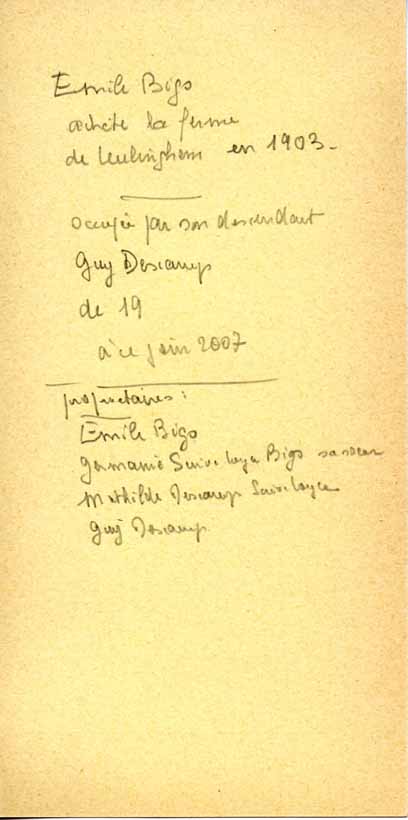 Emile Bigo
achète la ferme
de Leulinghem en 1903 -
occupée par son descendant
Guy Descamps
de 19
à ce juin 2007
propriétaires :
Emile Bigo
Germaine Bigo sa soeur
Mathilde Descamps
Guy Descamps